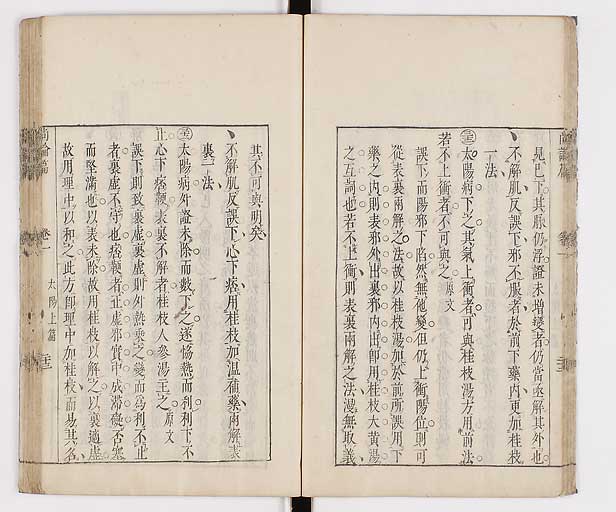 見已下其脉仍浮證未增變者仍當亟解其外也
丶不解肌反誤下邪不服者於前下藥內更加桂枝
一法
太陽病下之其氣上衝者可與桂枝湯方用前法
若不上衝者不可與之原文
誤下而陽邪下陷然無他變但仍上衝陽位則可
從表裏兩解之法故以桂枝湯加於前所誤用下
藥之內則表邪外出裏邪內出即用桂枝大黃湯
之互詞也若不上衝則表裏兩解之法漫無取義
其不可與明矣
丶不解肌反誤下心下痞用桂枝加溫補藥兩解表
裏一法
太陽病外證未除而數下之遂協熱而利利下不
止心下痞鞕表裏不解者桂枝人參湯主之原文
誤下則致裏虛裏虛則外熱乘之變而為利不止
者裏虛不守也痞鞕者正虛邪實中成滯礙否塞
而堅滿也以表未除故用桂枝以解之以裏適虛
故用理中以和之此方即理中加桂枝而易其名
尚論篇
卷一
太陽上篇